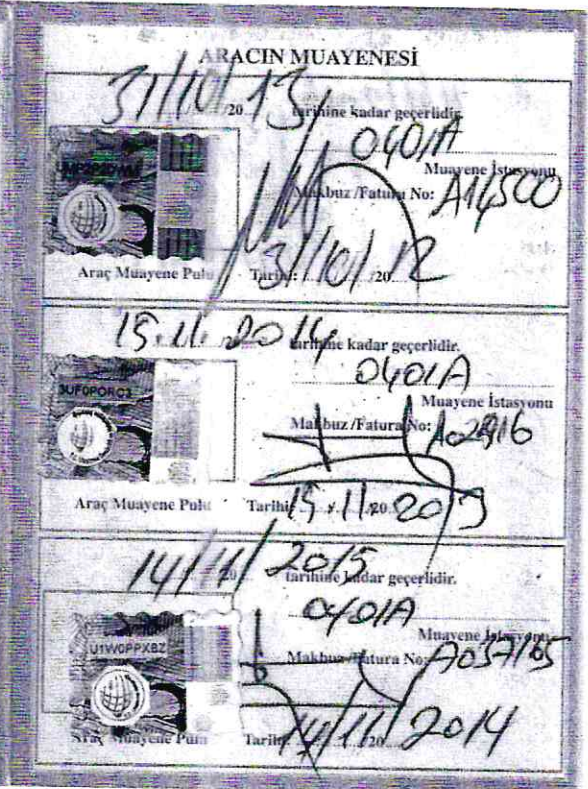 ARACIN MUAYENESİ
31/10/20 13 tarihine kadar geçerlidir.
0401A
Muayene İstasyonu
Makbuz/Fatura No: A14500
Araç Muayene Pulu Tarihi: 31/10/20 12
15.11.2014 tarihine kadar geçerlidir.
0401A
3UF0PORC3
Muayene İstasyonu
Makbuz/Fatura No:
Araç Muayene Pulu Tarihi: 15.11.20 2013
14/11/20 2015 tarihine kadar geçerlidir.
0401A
U1W0PPXBZ
Muayene İstasyonu
Makbuz/Fatura No:
Araç Muayene Pulu Tarihi: 14/11/20 2014